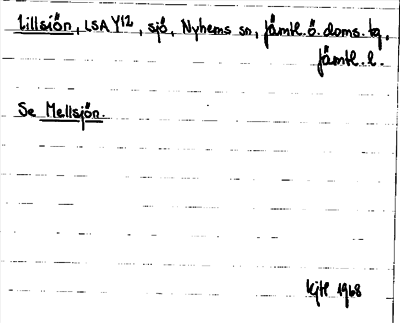 Lillsjön, LSA Y12, sjö, Nyhems sn, Jämtl. ö. doms. tg,
Jämtl. l.
Se Mellsjön.
KjH 1968